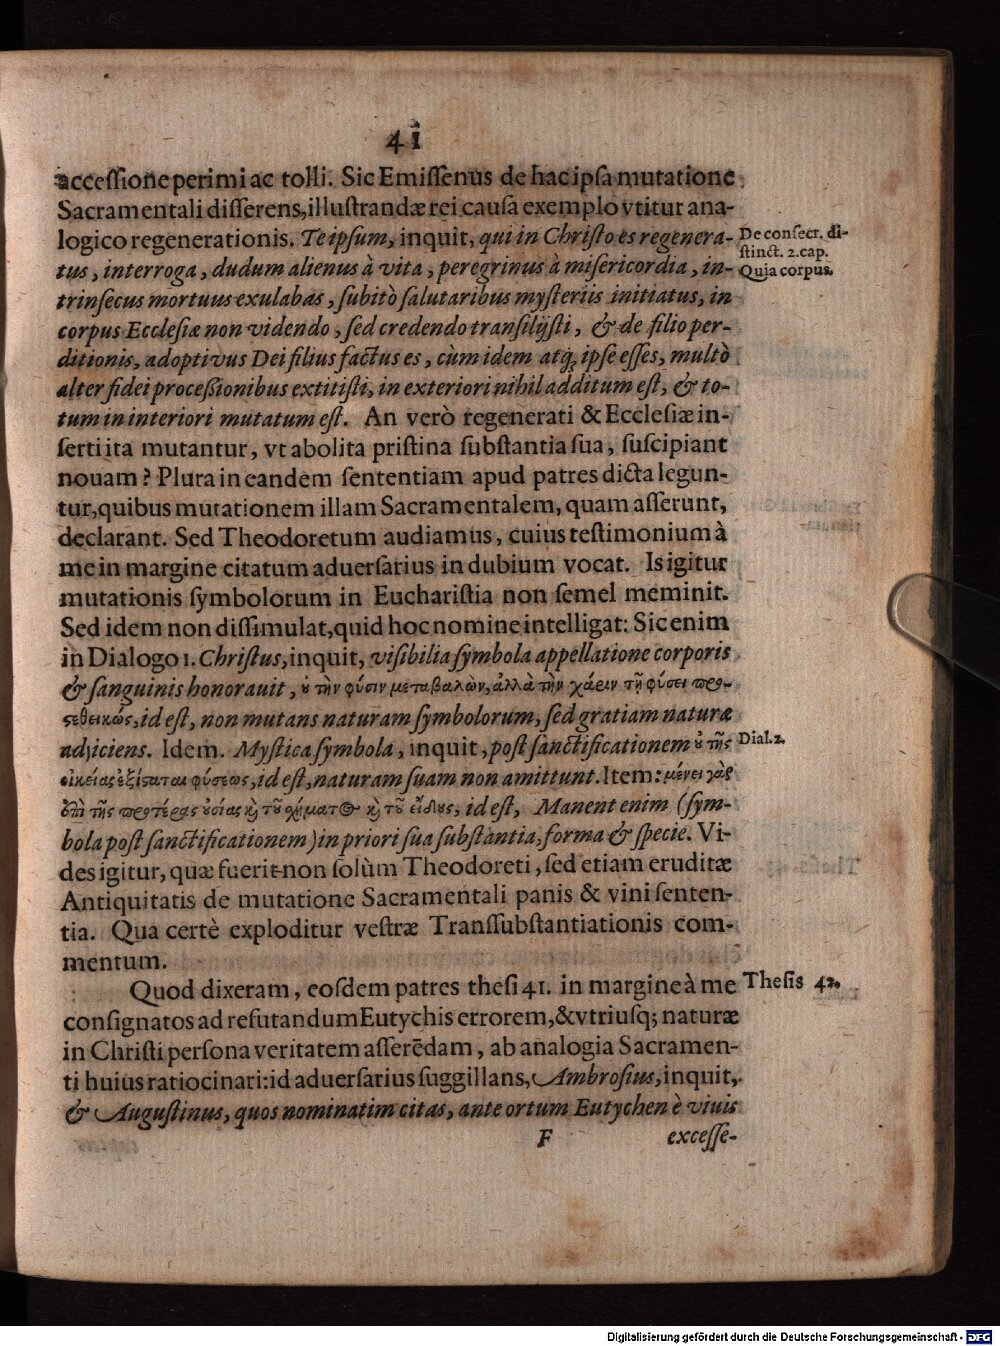 41
accessione perimi ac tolli. Sic Emissenus de hac ipsa mutatione
Sacramentali disserens, illustrandæ rei causa exemplo vtitur ana-
logico regenerationis. Te ipsum, inquit, qui in Christo es regenera-
De consecr. di-
stinct. 2. cap.
Quia corpus.
tus, interroga, dudum alienus à vita, peregrinus à misericordia, in-
trinsecus mortuus exulabas, subitò salutaribus mysteriis initiatus, in
corpus Ecclesiæ non videndo, sed credendo transilijsti, & de filio per-
ditionis, adoptivus Dei filius factus es, cùm idem atq; ipse esses, multò
alter fidei processionibus extitisti, in exteriori nihil additum est, & to-
tum in interiori mutatum est. An verò regenerati & Ecclesiæ in-
serti ita mutantur, vt abolita pristina substantia sua, suscipiant
nouam? Plura in eandem sententiam apud patres dicta legun-
tur, quibus mutationem illam Sacramentalem, quam asserunt,
declarant. Sed Theodoretum audiamus, cuius testimonium à
me in margine citatum aduersarius in dubium vocat. Is igitur
mutationis symbolorum in Eucharistia non semel meminit.
Sed idem non dissimulat, quid hoc nomine intelligat: Sic enim
in Dialogo 1. Christus, inquit, visibilia symbola appellatione corporis
& sanguinis honorauit, ȣ τὴν φύσιν μεταβαλὼν, ἀλλὰ τὴν χάριν τῇ φύσει προ-
ςεθεικώς, id est, non mutans naturam symbolorum, sed gratiam naturæ
adjiciens. Idem. Mystica symbola, inquit, post sanctificationem ȣ τῆς
Dial. 2.
οἰκείας ἐξίςαται φύσεως, id est, naturam suam non amittunt. Item: μένει γὰρ
ἐπὶ τῆς προτέρας ȣσίας κ̀ τȣ͂ χήματ@ κ̀ τȣ͂ εἴδȣς, id est, Manent enim (sym-
bola post sanctificationem) in priori sua substantia, forma & specie. Vi-
des igitur, quæ fuerit non solùm Theodoreti, sed etiam eruditæ
Antiquitatis de mutatione Sacramentali panis & vini senten-
tia. Qua certè exploditur vestræ Transsubstantiationis com-
mentum.
Quod dixeram, eosdem patres thesi 41. in margine à me
Thesis 42.
consignatos ad refutandum Eutychis errorem, & vtriusq; naturæ
in Christi persona veritatem asserēdam, ab analogia Sacramen-
ti huius ratiocinari: id aduersarius suggillans, Ambrosius, inquit,
& Augustinus, quos nominatim citas, ante ortum Eutychen è viuis
F
excesse-
Digitalisierung gefördert durch die Deutsche Forschungsgemeinschaft - DFG